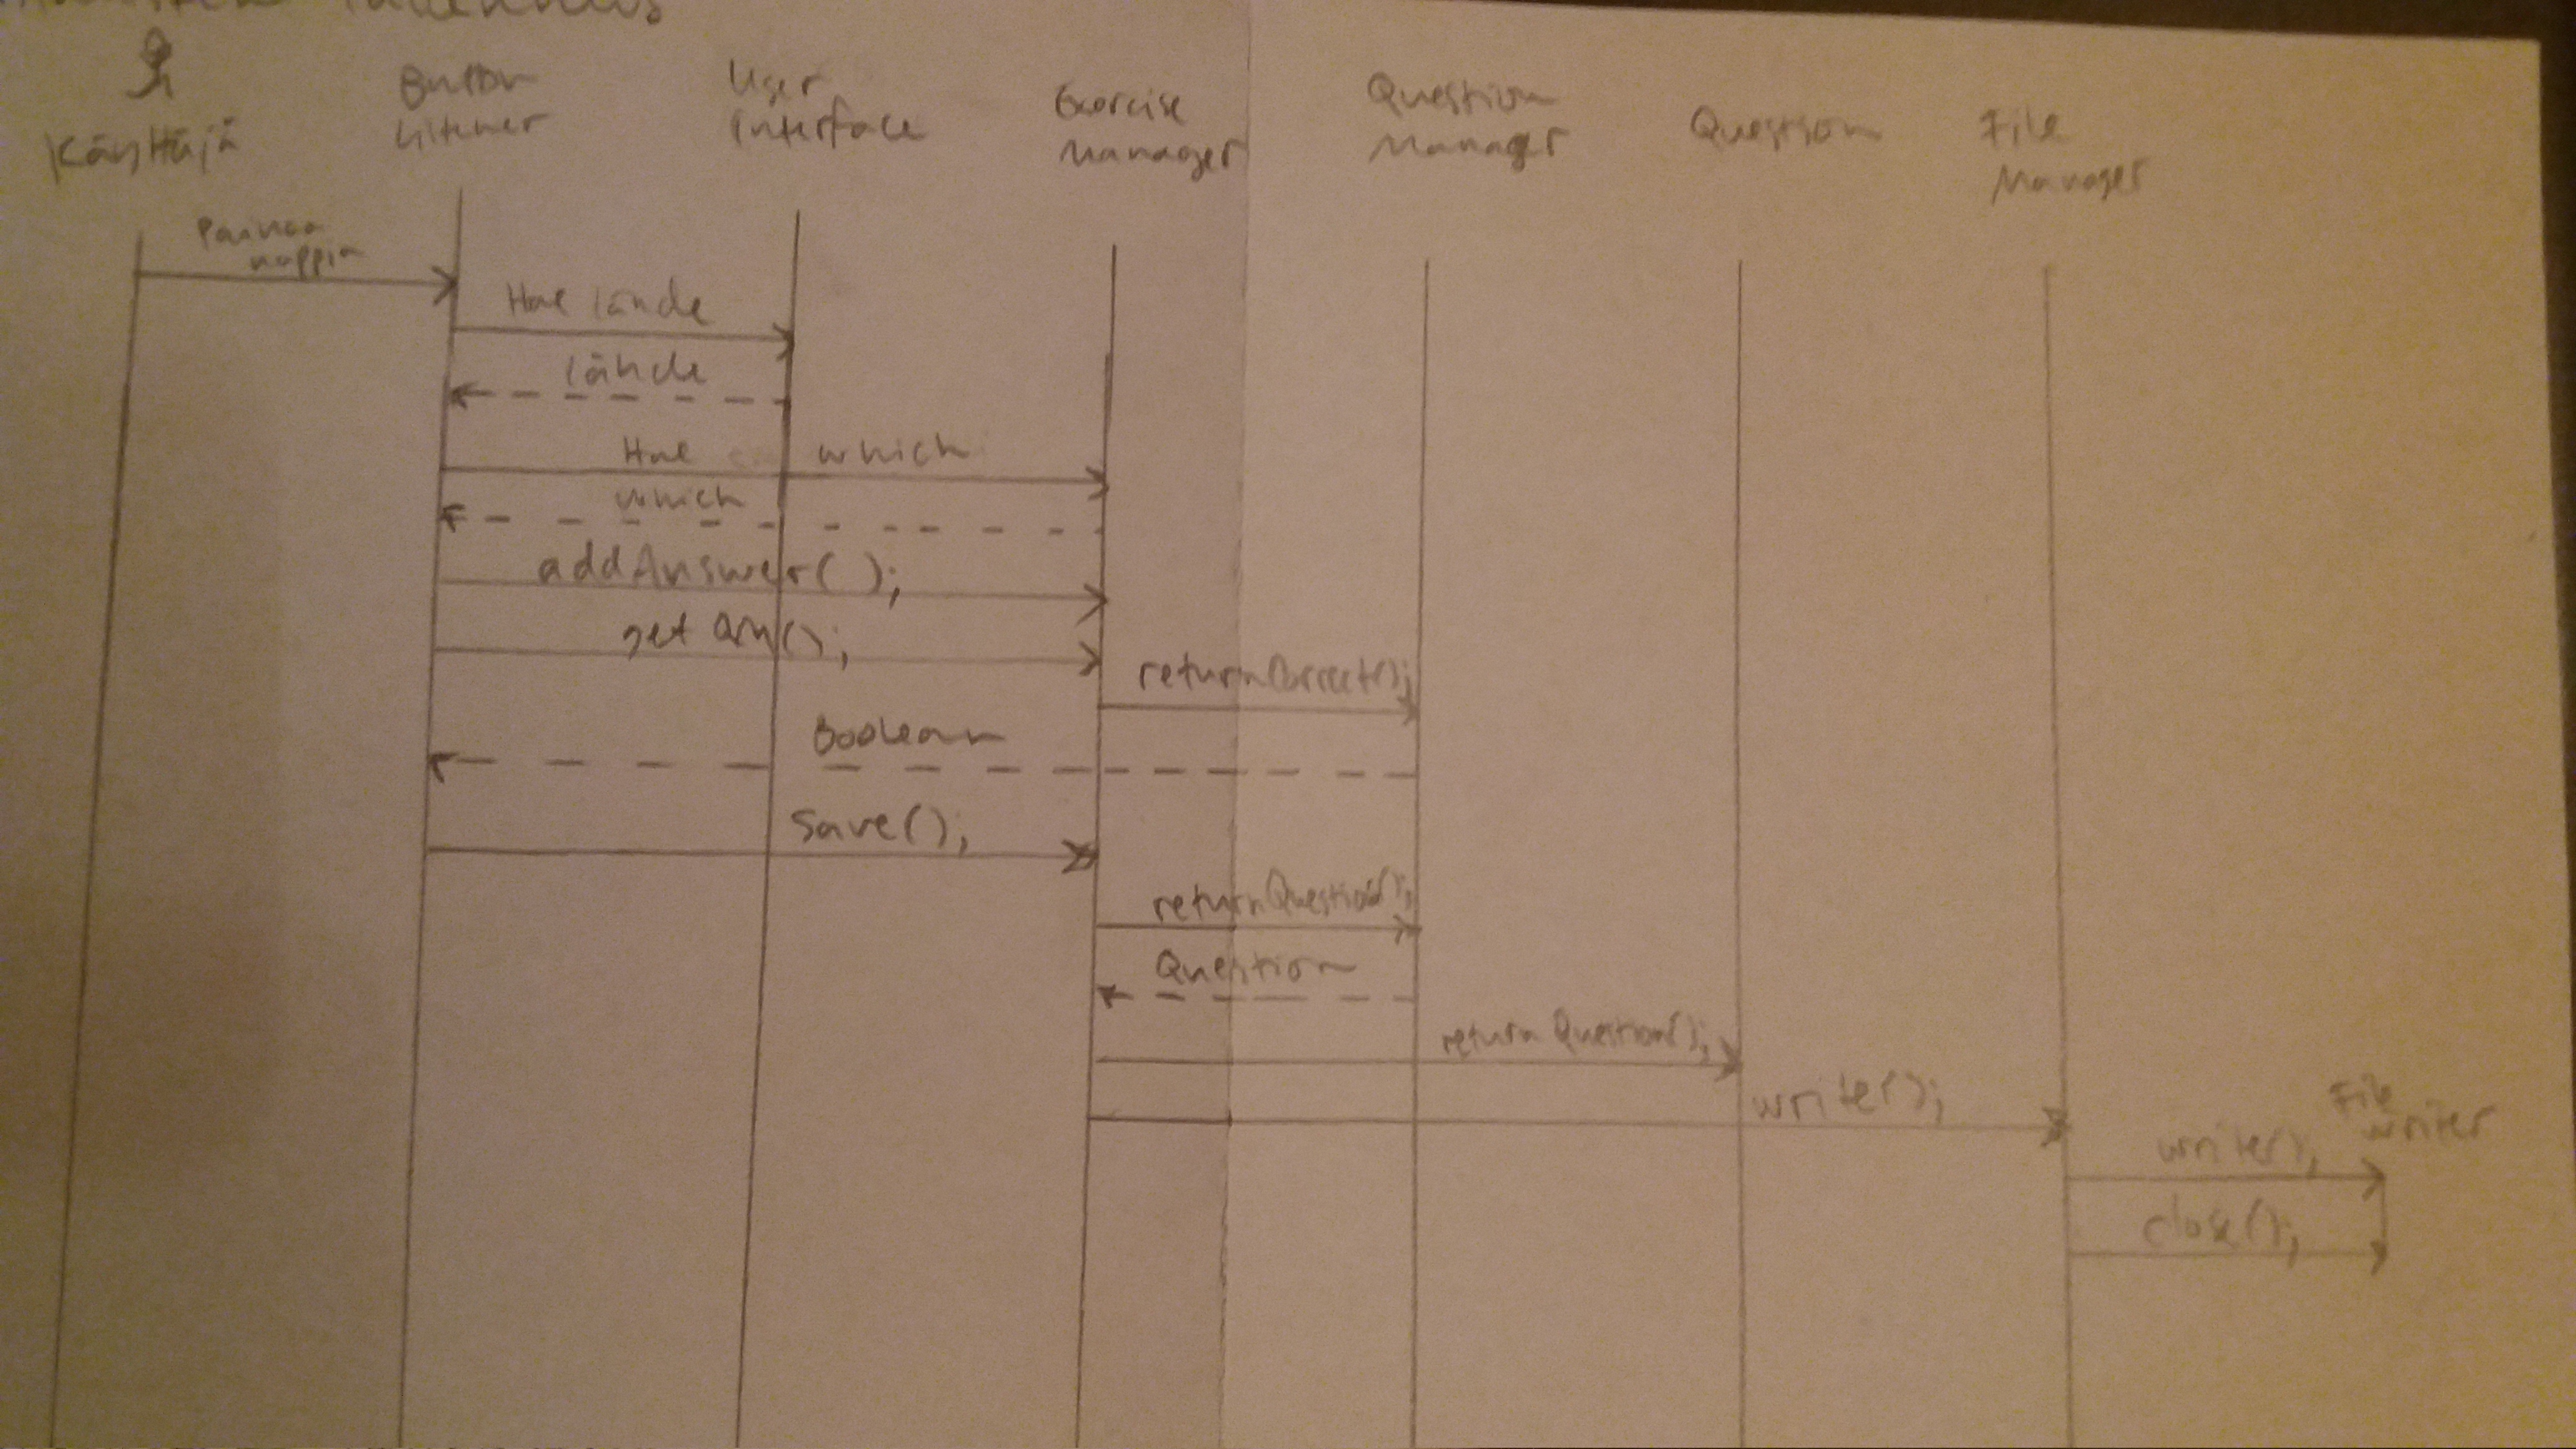 tallennus
Käyttäjä
Button
Listener
User
Interface
Exercise
Manager
Question
Manager
Question
File
Manager
Painaa
nappia
Hae lähde
lähde
Hae which
which
addAnswer( );
getQM();
returnCorrect();
Boolean
save();
returnQuestion();
Question
returnQuestion();
write();
File
writer
write();
close();